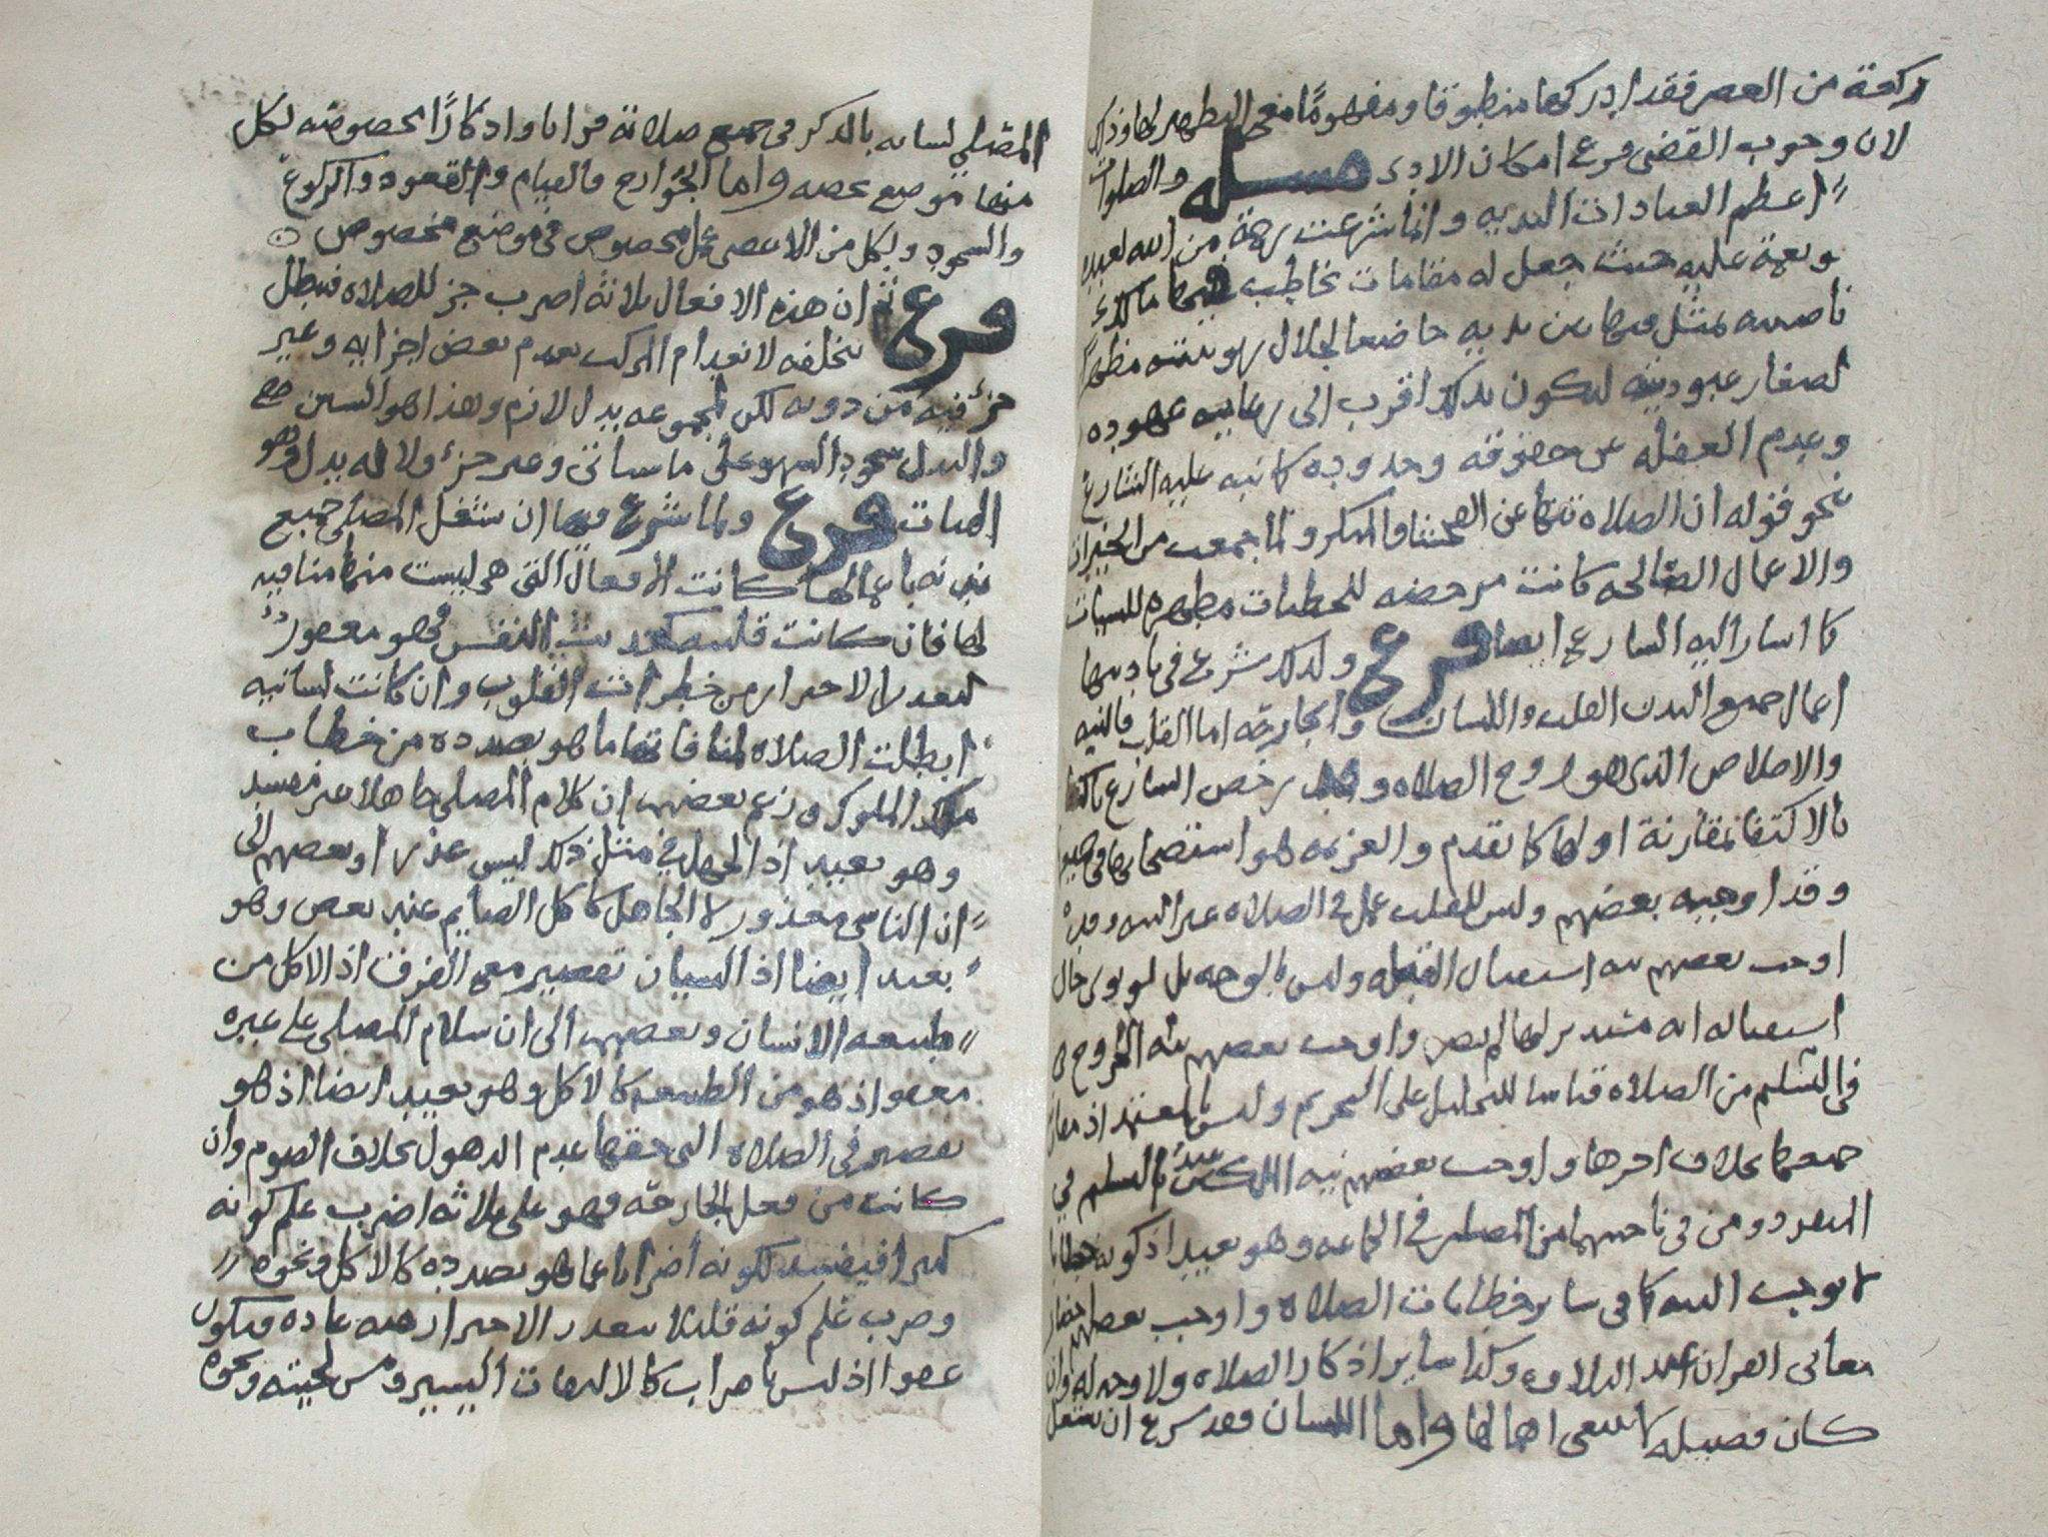 ركعة من العصر فقد ادركها منطوقا ومفهومًا مع التطهير لها وذلك
لان وجوب القضى فرع امكان الادى مسئله والصلوات
اعظم العبادات البدنيه وانما شرعت رحمة من الله لعبده
ونعمة عليه حيث جعل له مقامات يخاطب فيها مالك
ناصيته يمثل فيها بين يديه خاضعا لجلال ربوبيته مظهرا
لصغار عبوديته ليكون بذلك اقرب الى رعايه عهوده
وعدم الغفله عن حقوقه وحدوده كما نبه عليه الشارع
بنحو قوله ان الصلاه تنها عن الفحشا والمنكر ولما جمعت من الخيرات
والاعمال الصالحه كانت مرحضه للخطيات مطهره للسيات
كما اشار اليه الشارع ايضا فرع ولذلك شرع في تاديتها
اعمال جميع البدن القلب واللسان والجارحه اما القلب فالنيه
والاخلاص الذي هو روح الصلاه وقد رخص الشارع
بالاكتفا بمقارنة اولها كما تقدم والعزيمه هو استصحابها في جميعها
وقد اوجبه بعضهم وليس للقلب عمل في الصلاه غير النيه وقد
اوجب بعضهم نيه استقبال القبله وليس بالوجه بل لو نوى حال
استقباله انه مستدبر لها لم يضر واوجب بعضهم نيه الخروج
في التسليم من الصلاه قياسا للتحليل على التحريم وليس بالمعتمد اذ
جميعها بخلاف اخرها واوجب بعضهم نيه الملكين عند التسليم في
المنفرد ومن في ناحيتهما من المصلين في الجماعه وهو بعيد اذ كونه خطابا
لا يوجب النيه كما في ساير خطابات الصلاه واوجب بعضهم احضار
معاني القران عند التلاوه وكذا ساير اذكار الصلاه ولا وجه له وان
كان فضيله لا ينبغي اهمالها واما اللسان فقد شرع ان يشغل
المصلي لسانه بالذكر في جميع صلاته قرانا واذكارًا مخصوصه لكل
منها موضع يخصه واما الجوارح فالقيام والقعود والركوع
والسجود ولكل من الاعضى عمل مخصوص في موضع مخصوص
فرع ان هذه الافعال ثلاثه اضرب جز للصلاه فتبطل
بتخلفه لانعدام المركب بعدم بعض اجزايه وغير
جزء فيه من دونه لكن لمجموعه بدل لازم وهذا هو السنن
والبدل سجود السهو على ما سياتي وغير جزء ولا له بدل وهو
الهيات فرع ولما شرع فيها ان يشغل المصلي جميع
بدنه باعمالها كانت الافعال التي هي ليست منها منافيه
لها فان كانت قلبيه كحديث النفس فهو معفو
لتعذر الاحتراز من خطرات القلوب وان كانت لسانيه
ابطلت الصلاه لمنافاتها ما هو بصدده من خطاب
ملك الملوك وزعم بعضهم ان كلام المصلي جاهلا غير مفسد
وهو بعيد اذ الجهل في مثل ذلك ليس عذرا وبعضهم الى
ان الناسي معذور لا الجاهل كاكل الصايم عند بعض وهو
بعيد ايضا اذ النسيان تقصير مع الفرق اذ الاكل من
طبيعه الانسان وبعضهم الى ان سلام المصلي على غيره
معفو اذ هو من الطبيعه كالاكل وهو بعيد ايضا اذ هو
تقصير في الصلاه التي حقها عدم الذهول بخلاف الصوم وان
كانت من فعل الجارحه فهو على ثلاثه اضرب علم كونه
كثيرا فيفسد لكونه اضرابا عما هو بصدده كالاكل ونحوه
وضرب علم كونه قليلا يتعذر الاحتراز منه عاده فيكون
عفوا اذ ليس باضراب كالالتفات اليسير ومس لحيته ونحوه